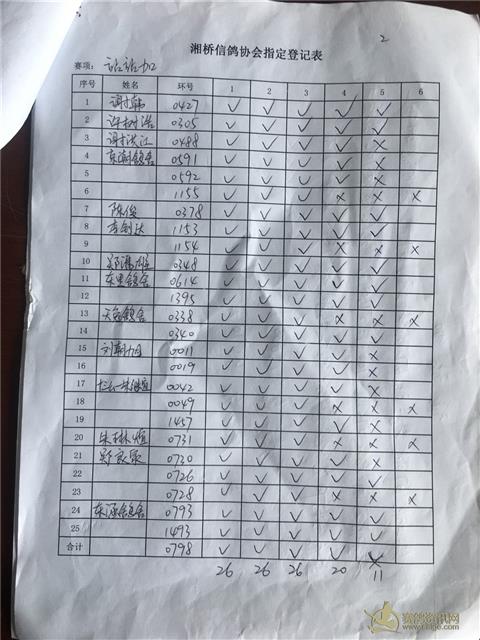 2
湘桥信鸽协会指定登记表
赛项: 站站加
序号 姓名 环号 1 2 3 4 5 6
1 谢才韩 0427 ✓ ✓ ✓ ✓ ✓
2 许树浩 0305 ✓ ✓ ✓ ✓ ✓
3 谢才洪江 0488 ✓ ✓ ✓ ✓ ×
4 鸽舍 0591 ✓ ✓ ✓ ✓ ×
5 0592 ✓ ✓ ✓ ✓ ×
6 1155 ✓ ✓ ✓ × × ×
7 陈俊 0378 ✓ ✓ ✓ ✓ ✓
8 李剑达 1153 ✓ ✓ ✓ ✓ ✓
9 1154 ✓ ✓ ✓ × × ×
10 郑雄 0348 ✓ ✓ ✓ ✓ ✓
11 东里鸽舍 0614 ✓ ✓ ✓ ✓ ✓
12 1395 ✓ ✓ ✓ ✓ ✓
13 天翁鸽舍 0338 ✓ ✓ ✓ × × ×
14 0340 ✓ ✓ ✓ ✓ ✓
15 刘朝旭 0011 ✓ ✓ ✓ ✓ ×
16 0019 ✓ ✓ ✓ ✓ ×
17 0042 ✓ ✓ ✓ ✓ ×
18 0049 ✓ ✓ ✓ × × ×
19 1457 ✓ ✓ ✓ ✓ ×
20 朱林煊 0731 ✓ ✓ ✓ × × ×
21 郑良聚 0730 ✓ ✓ ✓ ✓ ×
22 0726 ✓ ✓ ✓ ✓ ✓
23 0728 ✓ ✓ ✓ × × ×
24 东涵鸽舍 0793 ✓ ✓ ✓ ✓ ✓
25 1493 ✓ ✓ ✓ ✓ ✓
合计 0798 ✓ ✓ ✓ ✓ ×
26 26 26 20 11
赛鸽资讯网